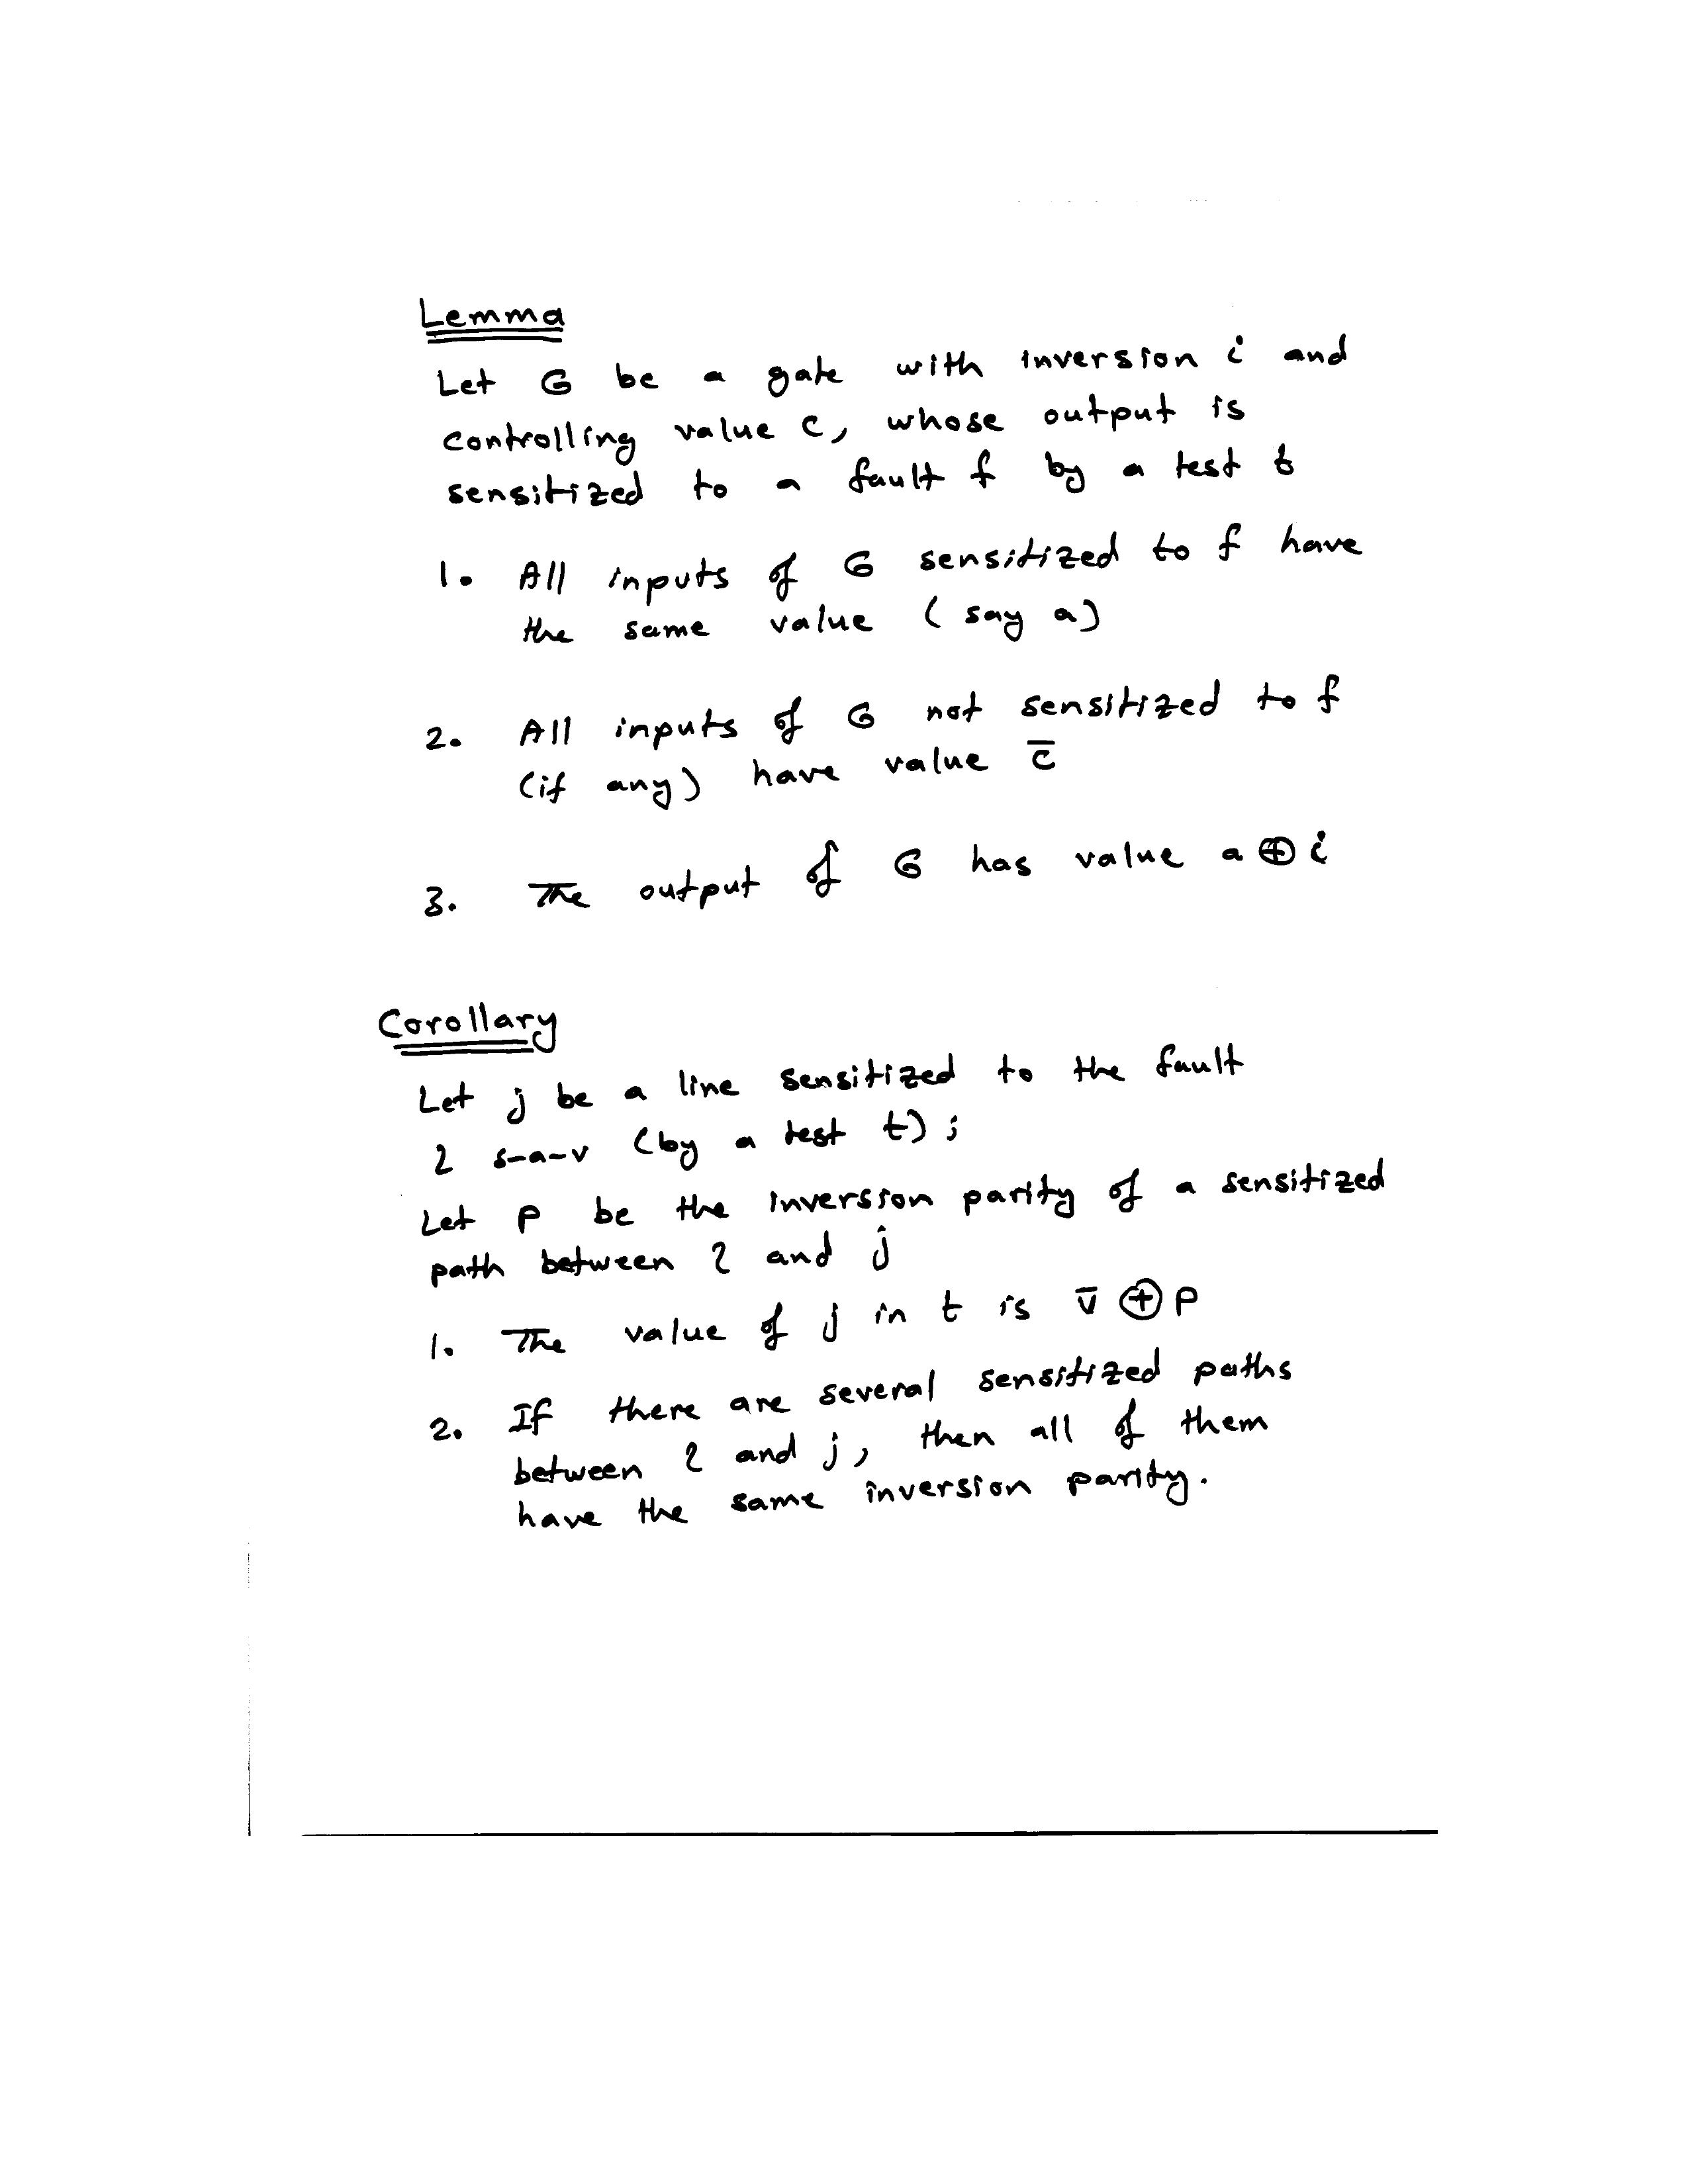 Lemma
Let G be a gate with inversion i and
controlling value c, whose output is
sensitized to a fault f by a test t
1. All inputs of G sensitized to f have
the same value (say a)
2. All inputs of G not sensitized to f
(if any) have value c̅
3. The output of G has value a ⊕ i
Corollary
Let j be a line sensitized to the fault
l s-a-v (by a test t);
Let p be the inversion parity of a sensitized
path between l and j
1. The value of j in t is v̅ ⊕ p
2. If there are several sensitized paths
between l and j, then all of them
have the same inversion parity.